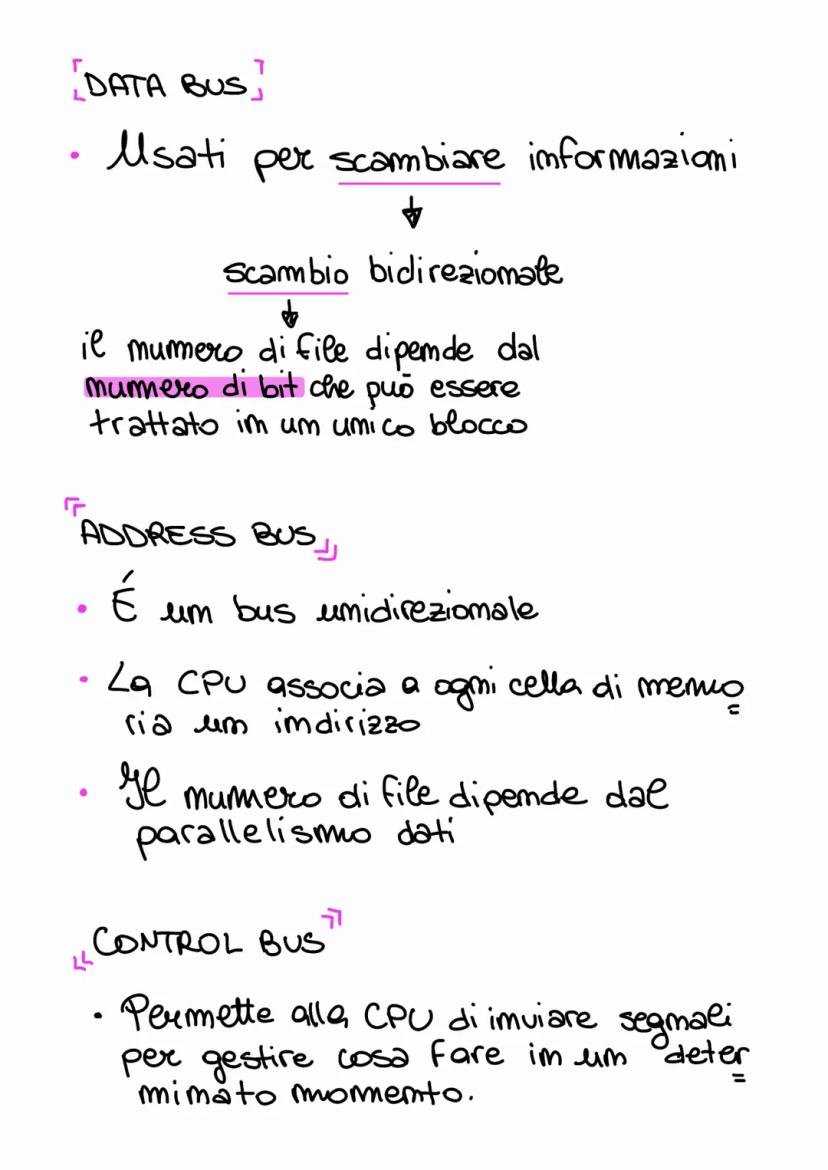 DATA BUS
• Usati per scambiare informazioni
scambio bidirezionale
il numero di file dipende dal
numero di bit che può essere
trattato in un unico blocco
ADDRESS BUS
• É un bus unidirezionale
• La CPU associa a ogni cella di memo=
ria un indirizzo
• Il numero di file dipende dal
parallelismo dati
CONTROL BUS
• Permette alla CPU di inviare segnali
per gestire cosa fare in un deter=
minato momento.